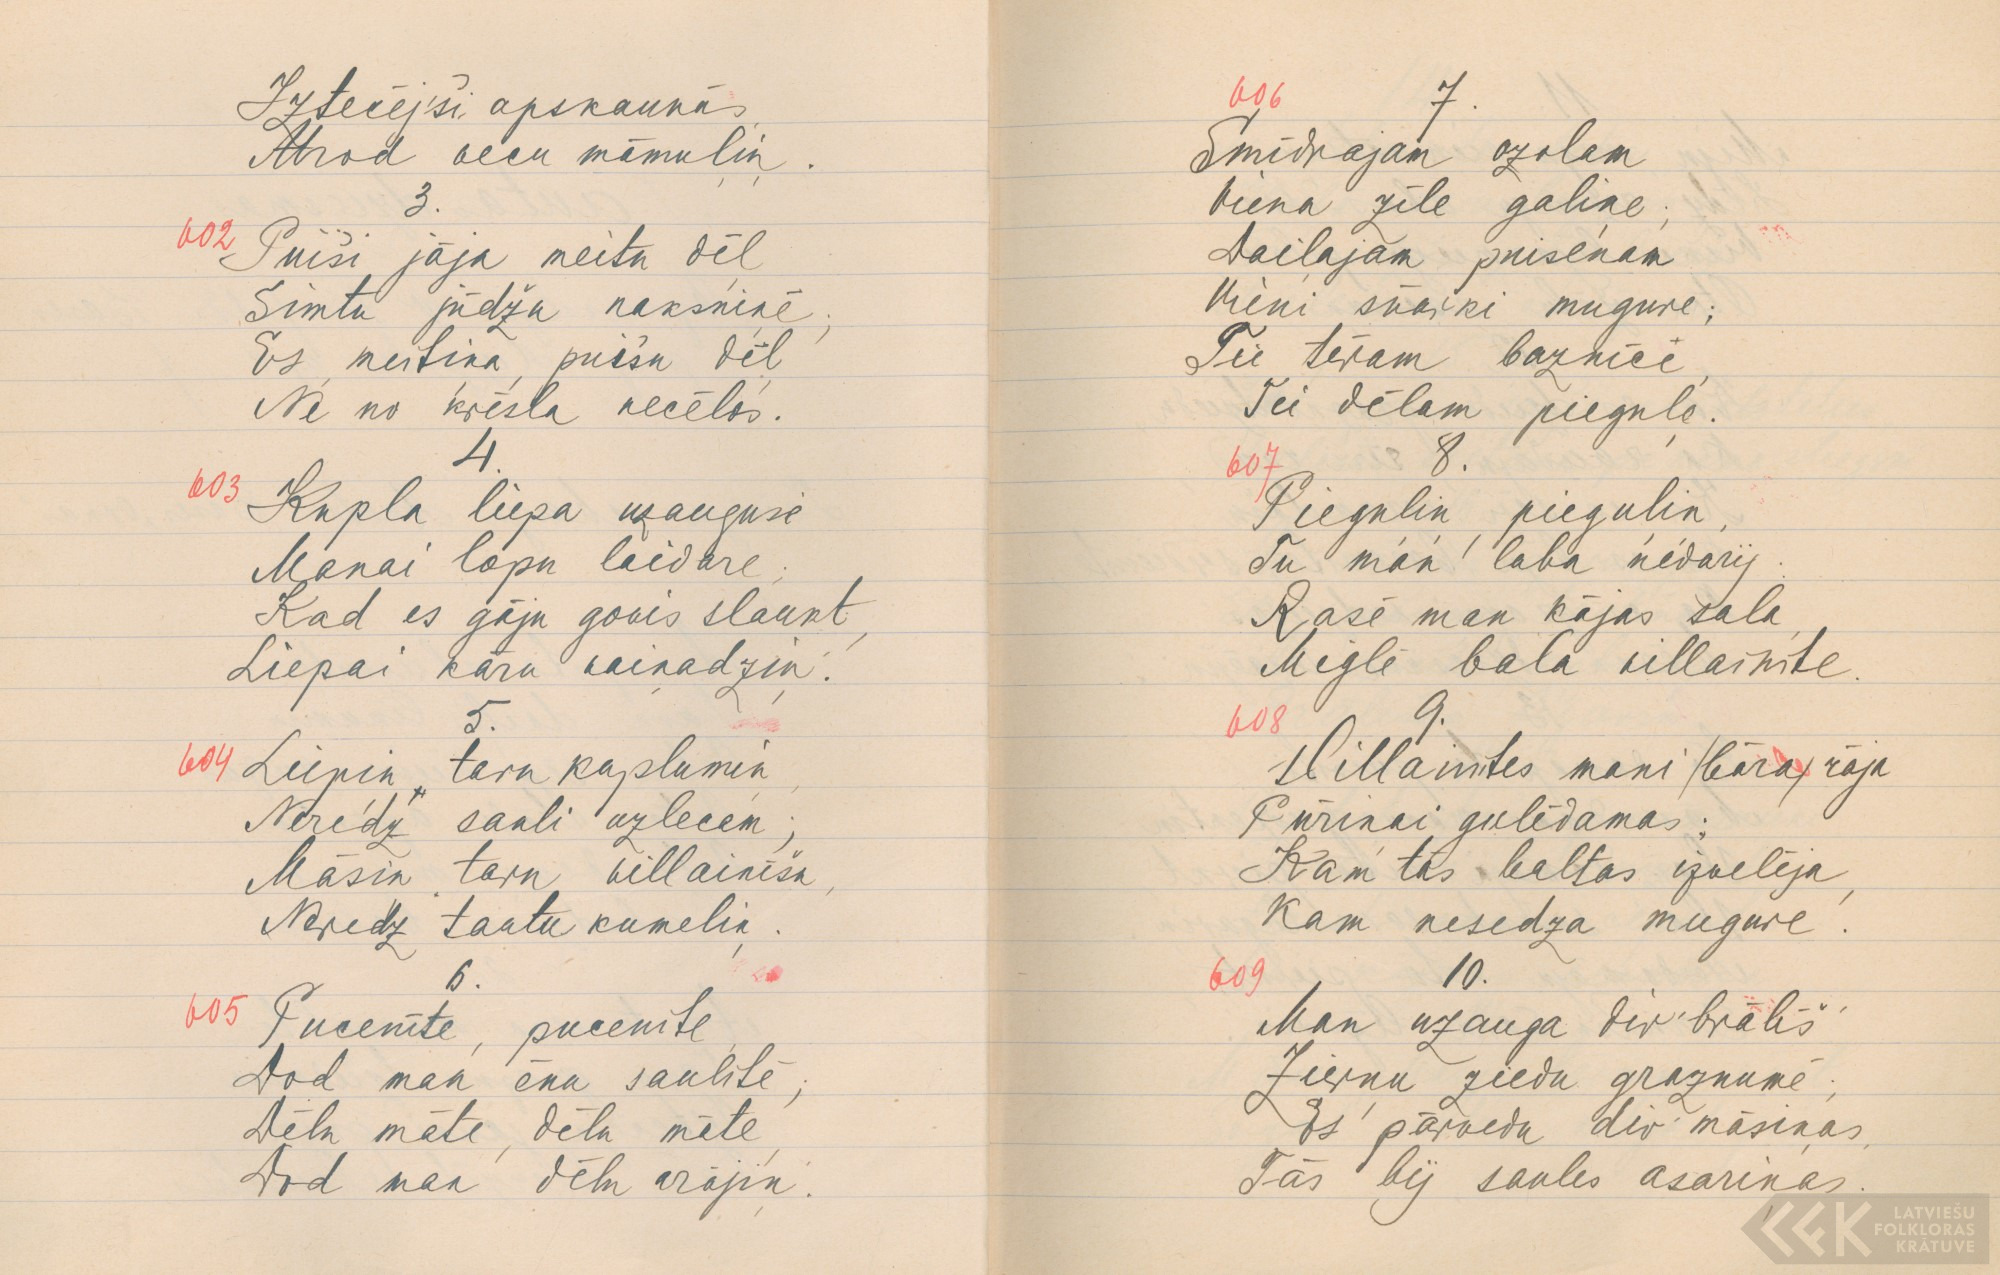 Iztecējši apskaunās,
Atrod vecu māmuliņ.
3.
602 Puiši jāja meitu dēļ
Simtu jūdžu naksniņē;
Es, meitiņa, puišu dēļ
Ne no krēsla necēlos.
4.
603 Kupla liepa uzauguse
Manai lopu laidare;
Kad es gāju govis slaukt,
Liepai kāru vainadziņ.
5.
604 Liepiņ, tavu kuplumiņ,
Neredz sauli uzlecam;
Māsiņ, tavu villainīšu,
Neredz tautu kumeliņ.
6.
605 Pucenīte, pucenīte,
Dod man ēnu saulītē;
Dēlu māte, dēlu māte,
Dod man dēlu arājiņ.
606 7.
Smīdrajam ozolam
Viena zīle galiņe;
Daiļajam puisēnam
Vieni svārki mugure;
Tie tēvam baznīcē,
Tei dēlam pieguļo.
607 8.
Piegulin, piegulin,
Tu man laba nedarij.
Rasē man kājas sala,
Miglē bala villainīte.
608 9.
Villainītes mani (bāra) rāja
Pūriņai gulēdamas;
Kam tās baltas izvelēja,
Kam nesedza mugure.
609 10.
Man uzauga div' brālīš'
Zirņu ziedu graznumē;
Es pārvedu div' māsiņas,
Tās bij saules asariņas.
LATVIEŠU
FOLKLORAS
KRĀTUVE